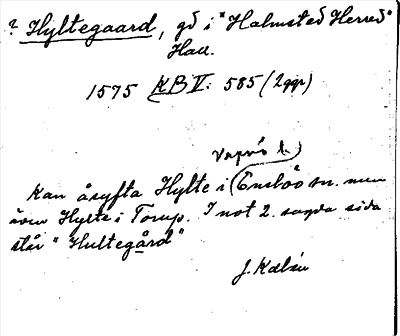 ? Hyltegaard, gd i "Halmsted Herred"
Hall.
1575 KB V: 585 (2 ggr)
Vapnö l.
Kan åsyfta Hylte i (Enslöv sn. men
även Hylte i Torup. I not 2. sagda sida
står "Hultegård"
J. Kalén